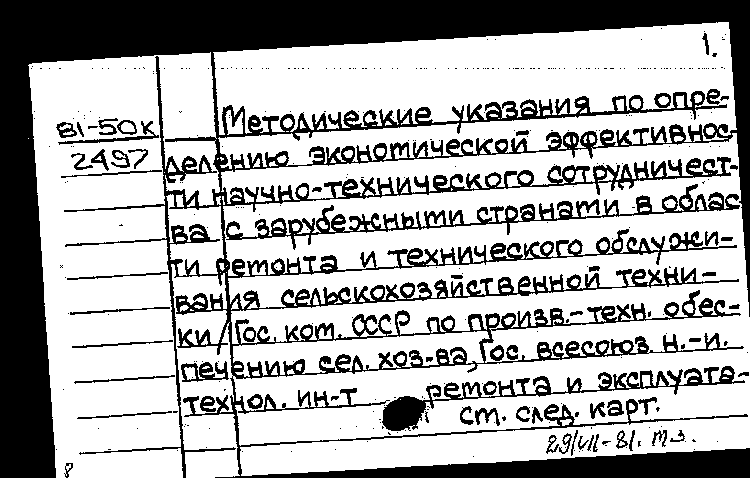 1.
81-50К Методические указания по опре-
2497 делению экономической эффективнос-
ти научно-технического сотрудничест-
ва с зарубежными странами в облас
ти ремонта и технического обслужи-
вания сельскохозяйственной техни-
ки / Гос. ком. СССР по произв.-техн. обес-
печению сел. хоз-ва, Гос. всесоюз. н.-и.
технол. ин-т ремонта и эксплуата-
см. след. карт.
29/VII-81. тз.
8